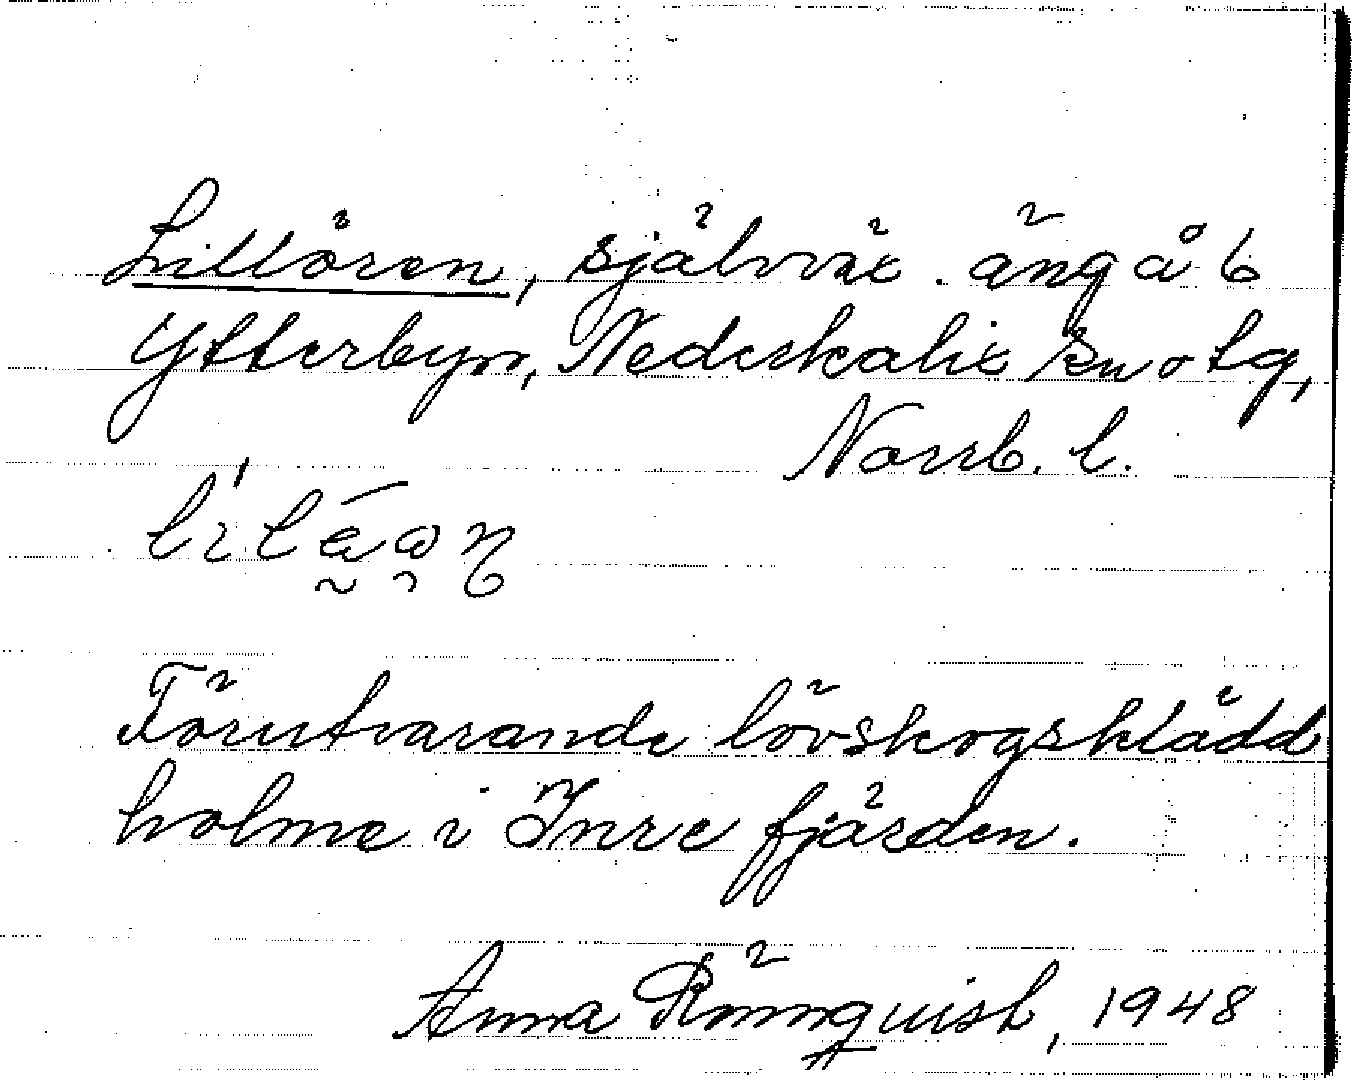 Lillören, självväx. äng å 6
Ytterbyn, Nederkalix sn o tg,
Norrb. l.
Förutvarande lövskogsklädd
holme i Inre fjärden.
Anna Rönnquist, 1948